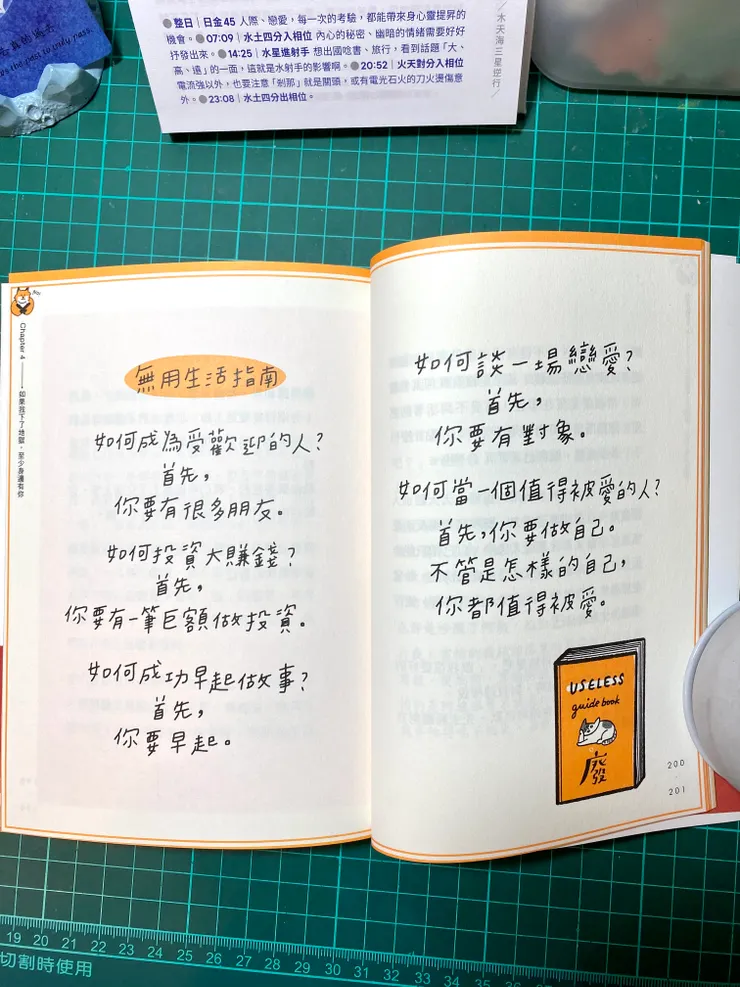 整日｜日金45 人際、戀愛，每一次的考驗，都能帶來身心靈提昇的
機會。●07:09｜水土四分入相位 內心的秘密、幽暗的情緒需要好好
抒發出來。●14:25｜水星進射手 想出國唸書、旅行，看到話題「大、
高、遠」的一面，這就是水射手的影響啊。●20:52｜火天對分入相位
電流強以外，也要注意「剎那」就是關頭，或有電光石火的刀火燙傷意
外。●23:08｜水土四分出相位。
／水天海三星逆行／
No!
Chapter 4
如果我下了地獄，至少身邊有你
無用生活指南
如何成為受歡迎的人？
首先，
你要有很多朋友。
如何投資大賺錢？
首先，
你要有一筆巨額做投資。
如何成功早起做事？
首先，
你要早起。
如何談一場戀愛？
首先，
你要有對象。
如何當一個值得被愛的人？
首先，你要做自己。
不管是怎樣的自己，
你都值得被愛。
USELESS
guide book
廢
200
201
19 20 21 22 23 24 25 26 27 28 29 30 31 32 33 34
切割時使用